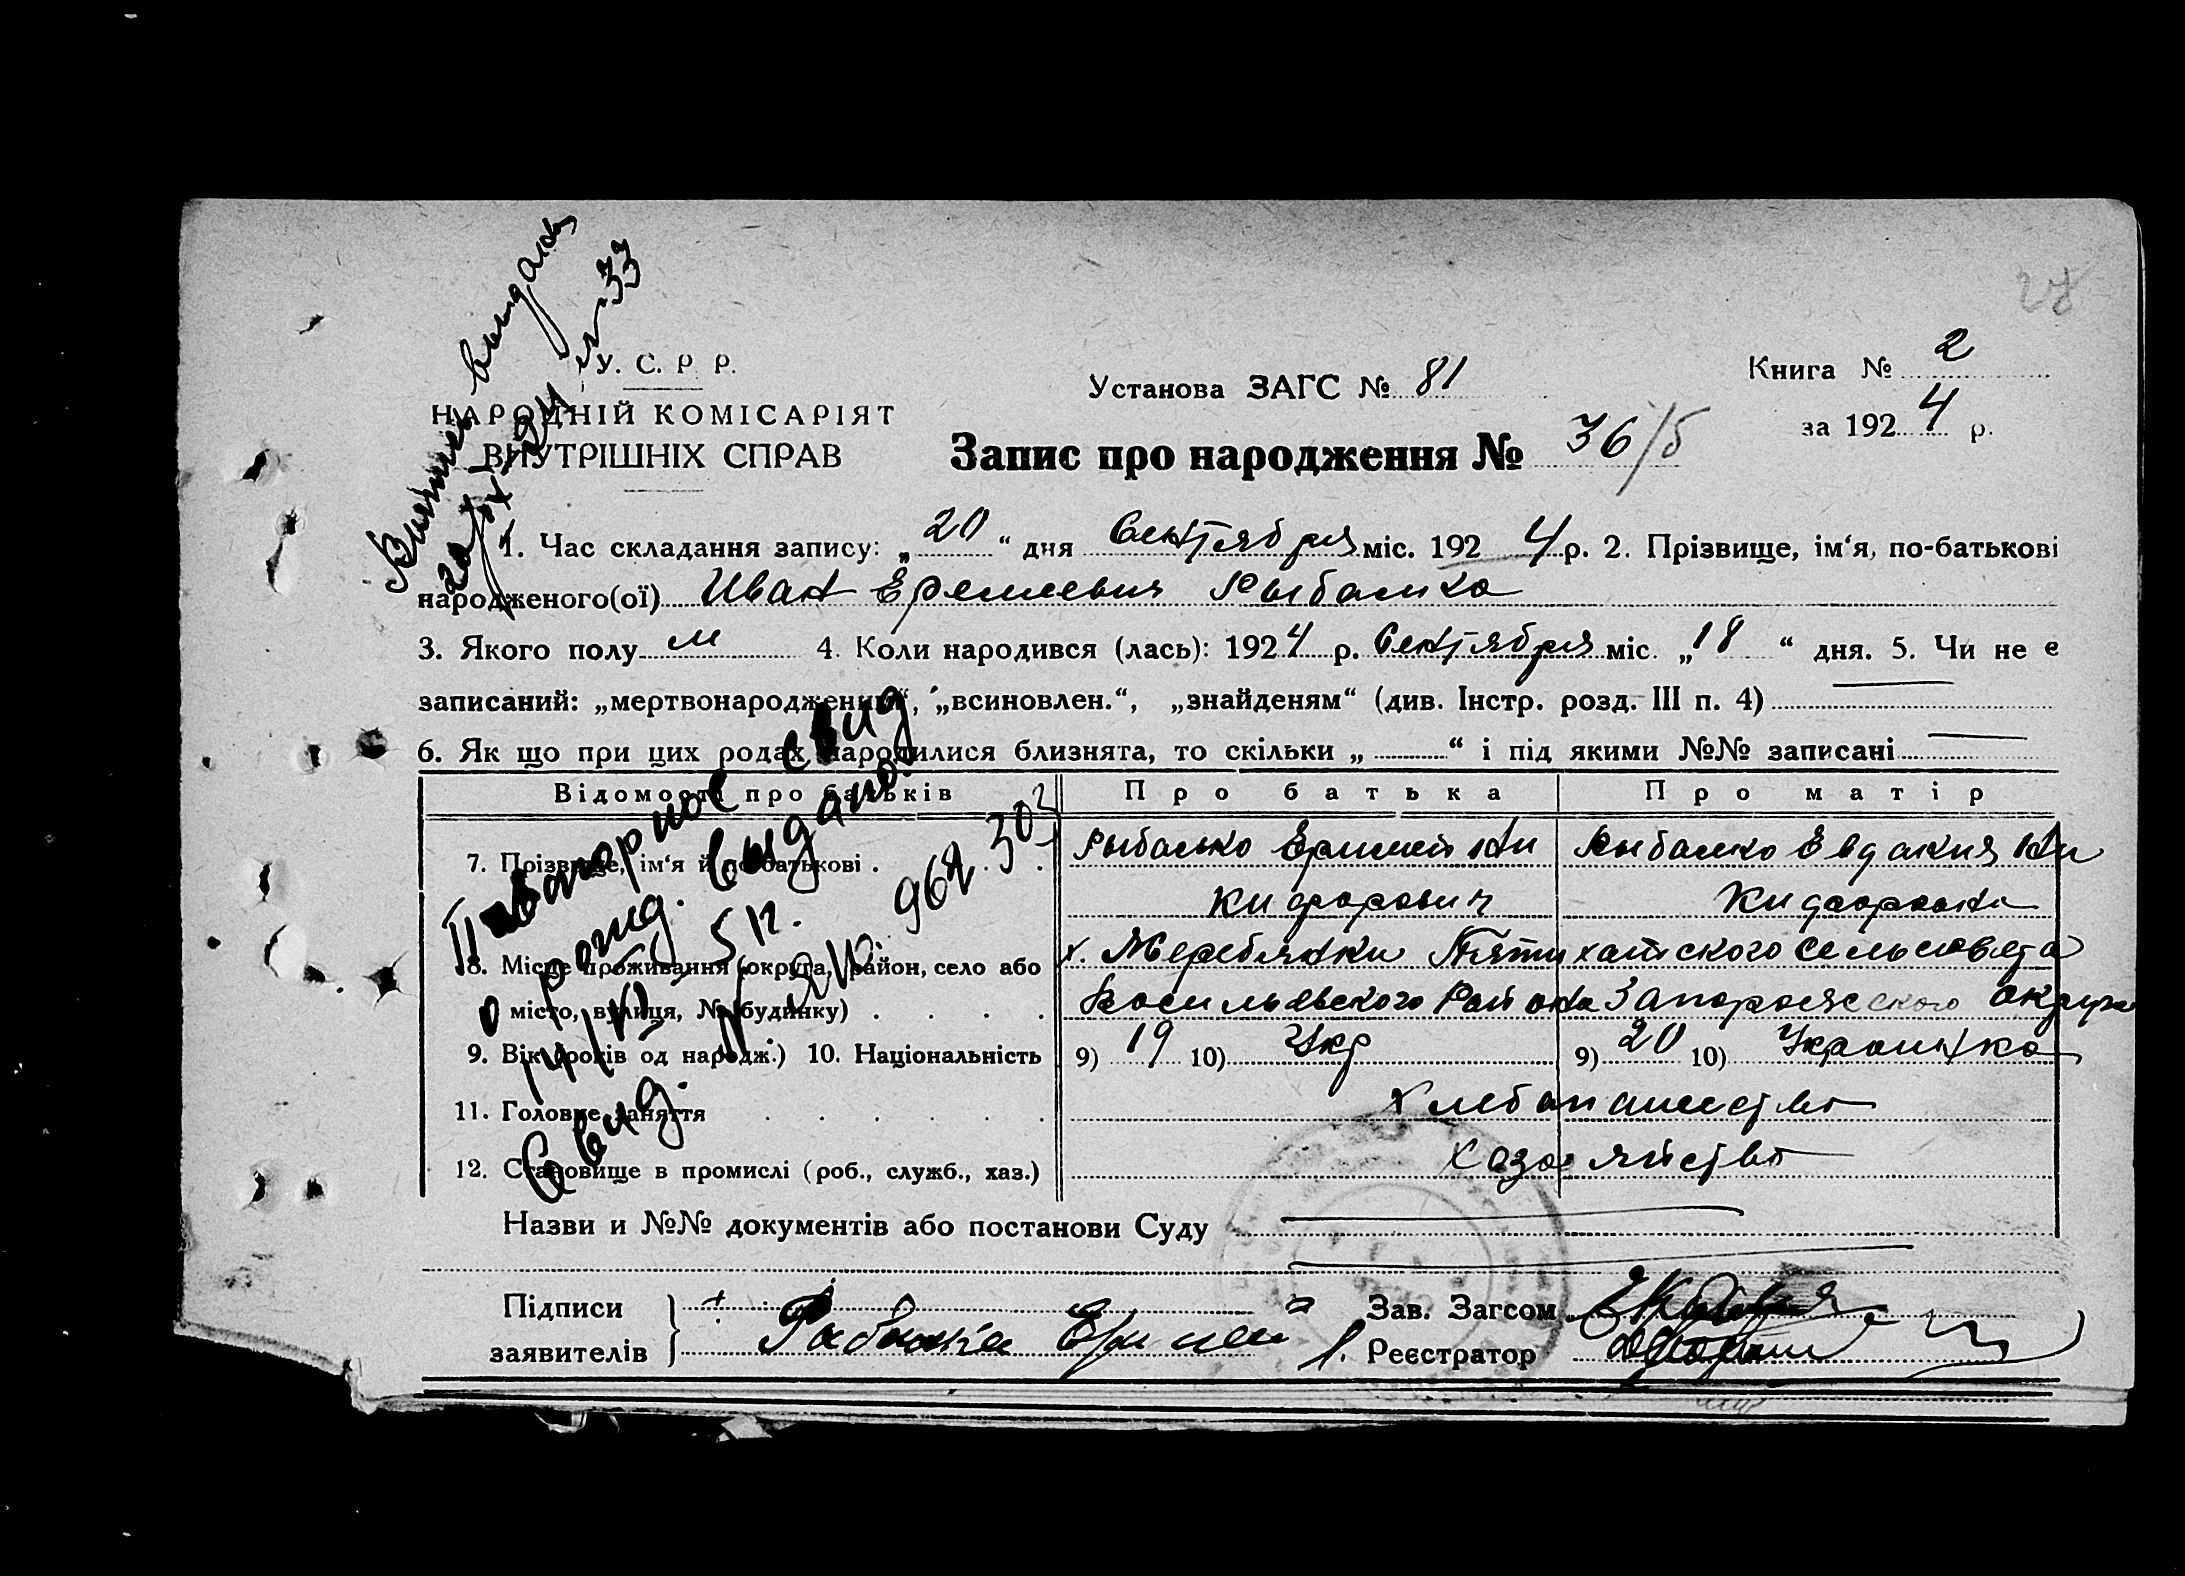 28
Выпись выдана
20/IX 24 № 33
У. С. Р. Р.
НАРОДНІЙ КОМІСАРІЯТ
ВНУТРІШНІХ СПРАВ
Установа ЗАГС № 81
Книга № 2
за 1924 р.
Запис про народження № 36/5
1. Час складання запису: „20“ дня Сентября міс. 1924 р. 2. Прізвище, ім‘я, по-батькові
народженого(ої) Иван Еремеевич Рыбалко
3. Якого полу м 4. Коли народився (лась): 1924 р. Сентября міс. „18“ дня. 5. Чи не є
записаний: „мертвонароджений“, „всиновлен.“, „знайденям“ (див. Інстр. розд. III п. 4)
6. Як що при цих родах народилися близнята, то скільки „ “ і під якими №№ записані
Відомости про батьків Про батька Про матір
7. Прізвище, ім‘я й по-батькові . Рыбалько Еримей Ни Рыбалко Евдакия Ни
кифорович кифоровна
8. Місце проживання (округа, район, село або х. Жеребянки Пятихатского сельсовета
місто, вулиця, № будинку) . . . . Васильевского Района Запорожского округа
9. Вік (років од народж.) 10. Національність 9) 19 10) Укр 9) 20 10) Украинка
11. Головне заняття . . . . . . Хлебопашество
12. Становище в промислі (роб., служб., хаз.) Хозяйство
Повторное свид
о рожд. выдано
5 п.
Свид.
Назви и №№ документів або постанови Суду
Підписи
заявителів
Зав. Загсом
Реєстратор